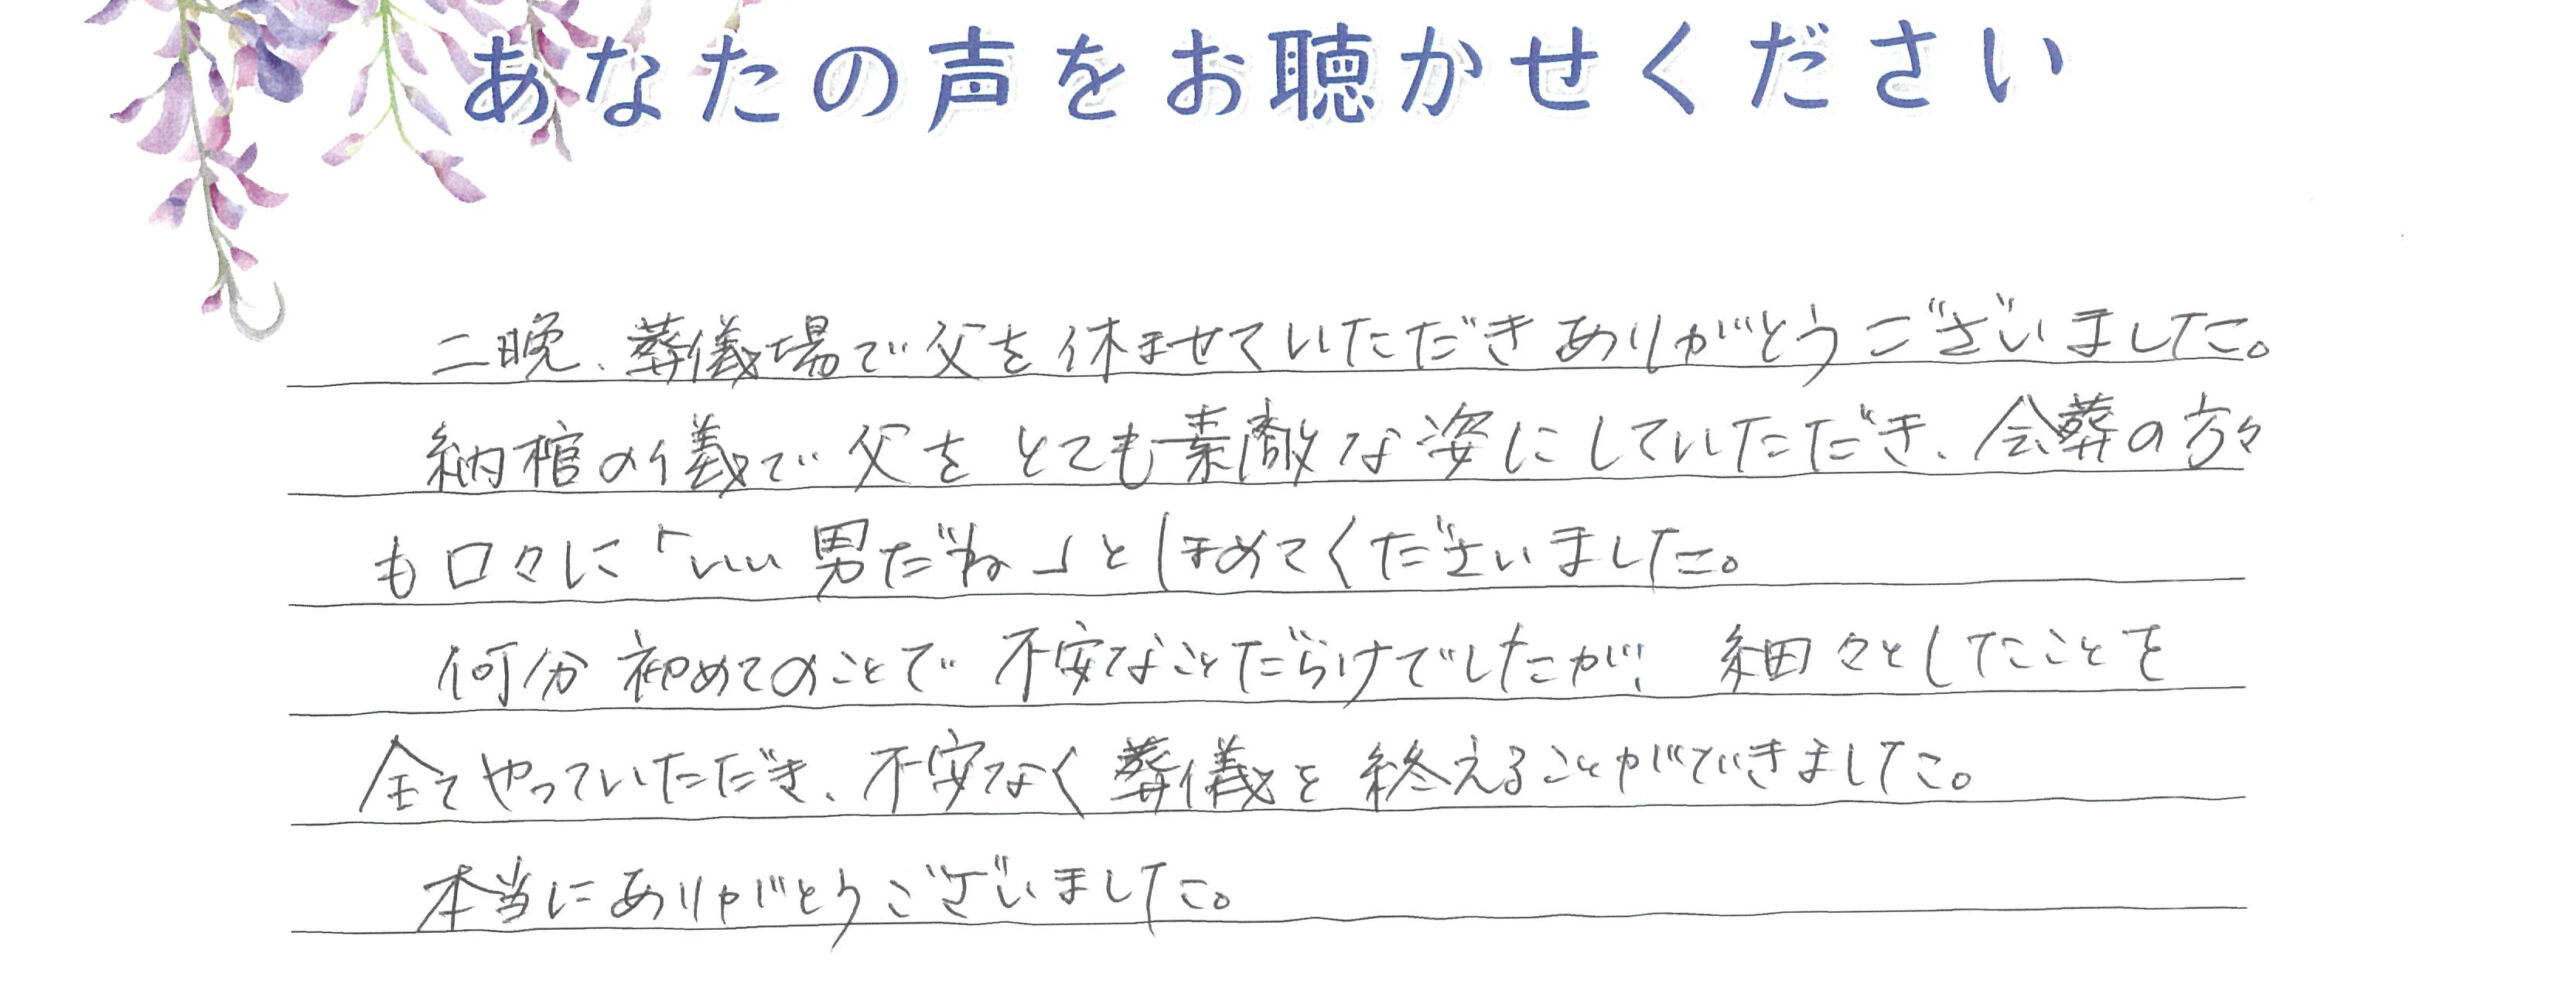 あなたの声をお聴かせください
二晩、葬儀場で父を休ませていただきありがとうございました。
納棺の儀で父をとても素敵な姿にしていただき、会葬の方々
も口々に「いい男だね」とほめてくださいました。
何分初めてのことで不安なことだらけでしたが、細々としたことを
全てやっていただき、不安なく葬儀を終えることができました。
本当にありがとうございました。